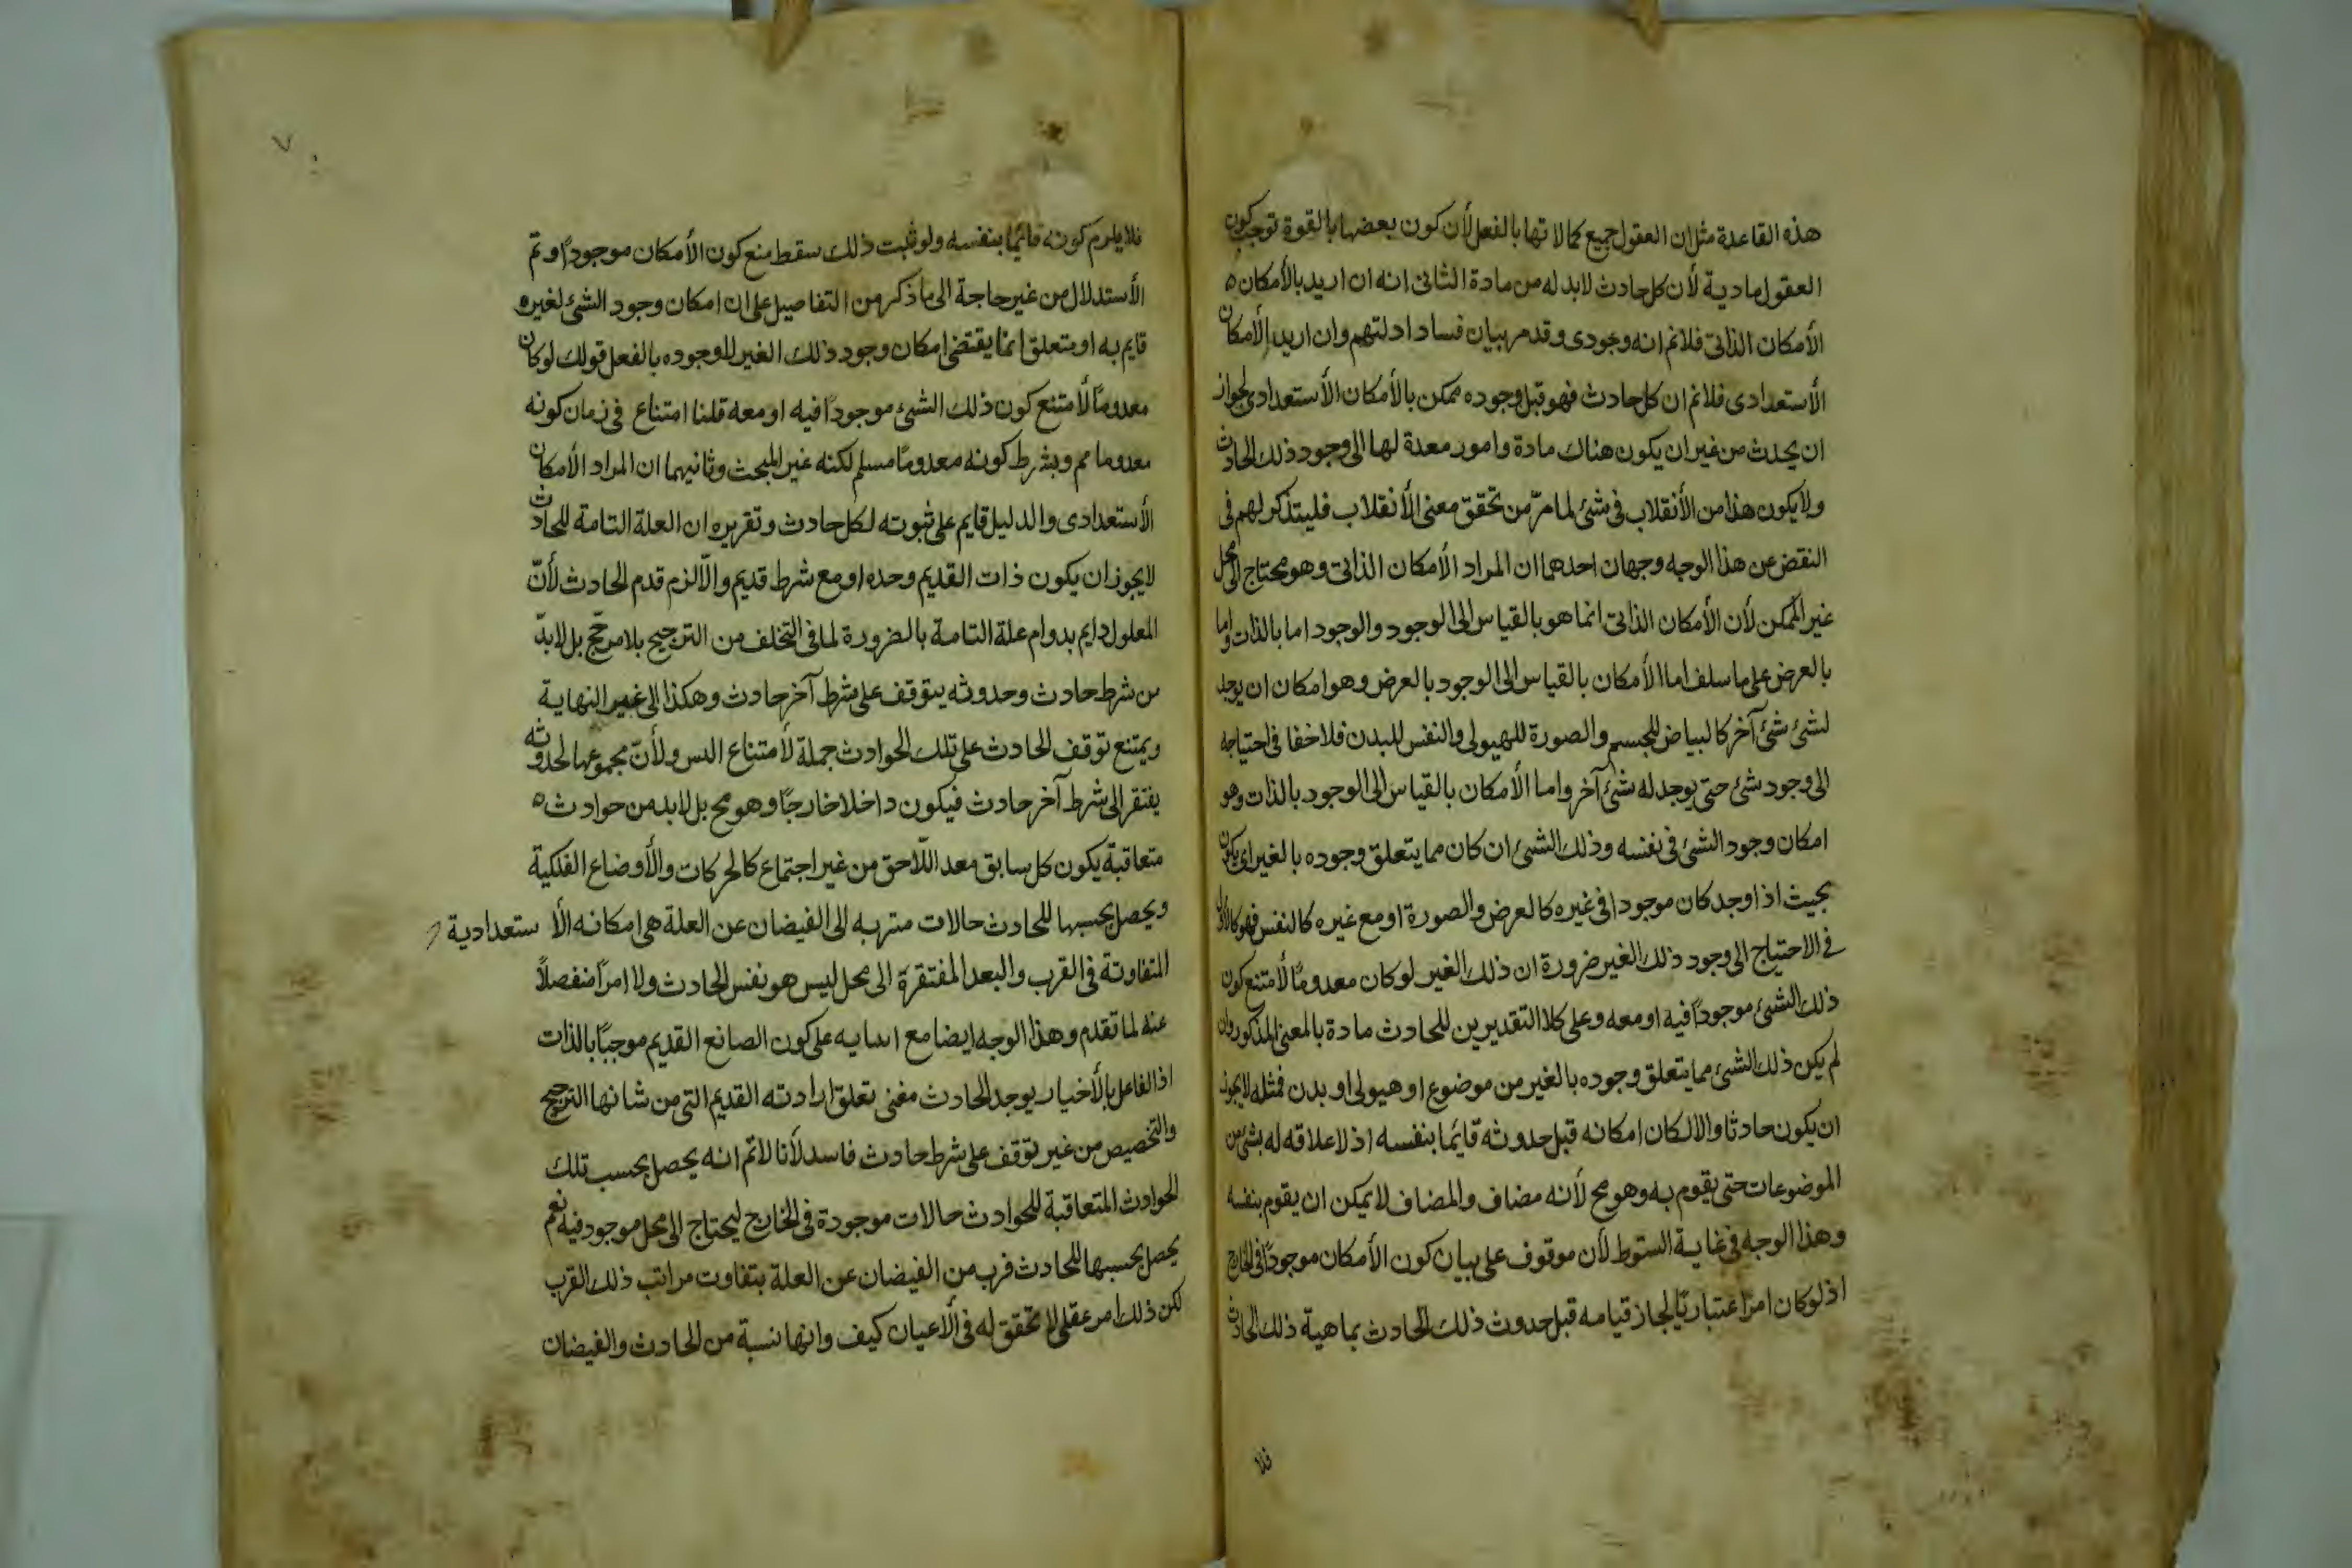 هذه القاعدة مثل ان العقول جميع كمالاتها بالفعل لأن كون بعضها بالقوة توجب كون
العقول مادية لأن كل حادث لابد له من مادة الثانى انه ان اريد بالأمكان ه
الأمكان الذاتى فلانم انه وجودى وقد مر بيان فساد ادلتهم وان اريد الأمكان
الأستعدادى فلانم ان كل حادث فهو قبل وجوده ممكن بالأمكان الأستعدادى لجواز
ان يحدث من غير ان يكون هناك مادة وامور معدة لها الى وجود ذلك الحادث
ولا يكون هذا من الأنقلاب فى شئ لما مرّ من تحقق معنى الأنقلاب فليتذكر لهم فى
النقض عن هذا الوجه وجهان احدهما ان المراد الأمكان الذاتى وهو محتاج الى محل
غير الممكن لأن الأمكان الذاتى انما هو بالقياس الى الوجود والوجود اما بالذات واما
بالعرض على ما سلف اما الأمكان بالقياس الى الوجود بالعرض وهو امكان ان يوجد
لشئ شئ آخر كالبياض للجسم والصورة للهيولى والنفس للبدن فلا خفا فى احتياجه
الى وجود شئ حتى يوجد له شئ آخر واما الأمكان بالقياس الى الوجود بالذات وهو
امكان وجود الشئ فى نفسه وذلك الشئ ان كان مما يتعلق وجوده بالغير اى يكون
بحيث اذا وجد كان موجودا فى غيره كالعرض والصورة او مع غيره كالنفس فهو كالأول
فى الاحتياج الى وجود ذلك الغير ضرورة ان ذلك الغير لو كان معدومًا لأمتنع كون
ذلك الشئ موجودًا فيه او معه وعلى كلا التقديرين للحادث مادة بالمعنى المذكور وان
لم يكن ذلك الشئ مما يتعلق وجوده بالغير من موضوع او هيولى او بدن فمثله لا يجوز
ان يكون حادثا والا لكان امكانه قبل حدوثه قايمًا بنفسه اذ لا علاقه له بشئ من
الموضوعات حتى يقوم به وهو مح لأنه مضاف والمضاف لا يمكن ان يقوم بنفسه
وهذا الوجه فى غاية السقوط لأن موقوف على بيان كون الأمكان موجودًا فى الخارج
اذ لو كان امرًا اعتباريًا لجاز قيامه قبل حدوث ذلك الحادث بماهية ذلك الحادث
فلا
٧
فلا يلزم كونه قائمًا بنفسه ولو ثبت ذلك سقط منع كون الأمكان موجودًا وتم
الأستدلال من غير حاجة الى ما ذكر من التفاصيل على ان امكان وجود الشئ لغيره
قايم به او متعلق انما يقتضى امكان وجود ذلك الغير لا وجوده بالفعل قولك لو كان
معدومًا لأمتنع كون ذلك الشئ موجودًا فيه او معه قلنا امتناع فى زمان كونه
معدوما مم وبشرط كونه معدومًا مسلم لكنه غير المبحث وثانيهما ان المراد الأمكان
الأستعدادى والدليل قايم على ثبوته لكل حادث وتقريره ان العلة التامة للحادث
لا يجوز ان يكون ذات القديم وحده او مع شرط قديم والّا لزم قدم الحادث لأنّ
المعلول دايم بدوام علة التامة بالضرورة لما فى التخلف من الترجيح بلا مرجّح بل لابدّ
من شرط حادث وحدوثه يتوقف على شرط آخر حادث وهكذا الى غير النهاية
ويمتنع توقف الحادث على تلك الحوادث جملة لأمتناع الدس ولأنّ مجموعها لحدوثه
يفتقر الى شرط آخر حادث فيكون داخلا خارجًا وهو مح بل لابد من حوادث ه
متعاقبة يكون كل سابق معد اللّاحق من غير اجتماع كالحركات والأوضاع الفلكية
ويحصل بحسبها للحادث حالات متربه الى الفيضان عن العلة هى امكانه الأستعدادية
المتفاوتة فى القرب والبعد المفتقرة الى محل ليس هو نفس الحادث ولا امرًا منفصلاً
عنه لما تقدم وهذا الوجه ايضا مع على كون الصانع القديم موجبًا بالذات
اذ الفاعل بالأختيار يوجد الحادث متى تعلق ارادته القديم التى من شانها الترجيح
والتخصيص من غير توقف على شرط حادث فاسد لأنا لانم انه يحصل بحسب تلك
الحوادث المتعاقبة للحوادث حالات موجودة فى الخارج ليحتاج الى محل موجود فيه نعم
يحصل بحسبها للحادث قرب من الفيضان عن العلة بتفاوت مراتب ذلك القرب
لكن ذلك امر عقلى لا تحقق له فى الأعيان كيف وانها نسبة من الحادث والفيضان